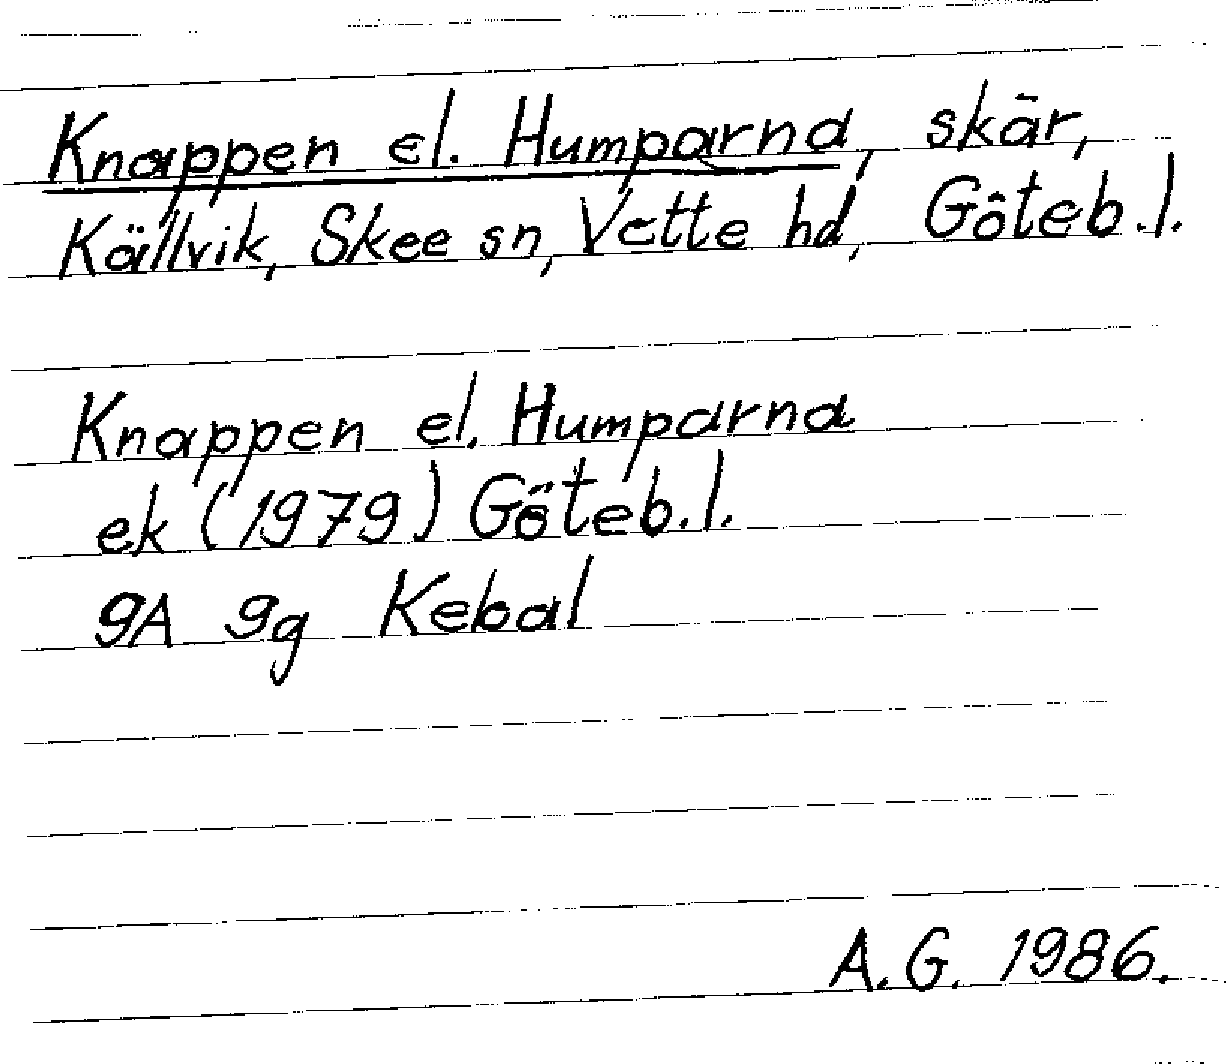 Knappen el. Humparna, skär,
Källvik, Skee sn, Vette hd, Göteb.l.
Knappen el. Humparna
ek (1979) Göteb.l.
9A 9g Kebal
A.G. 1986.